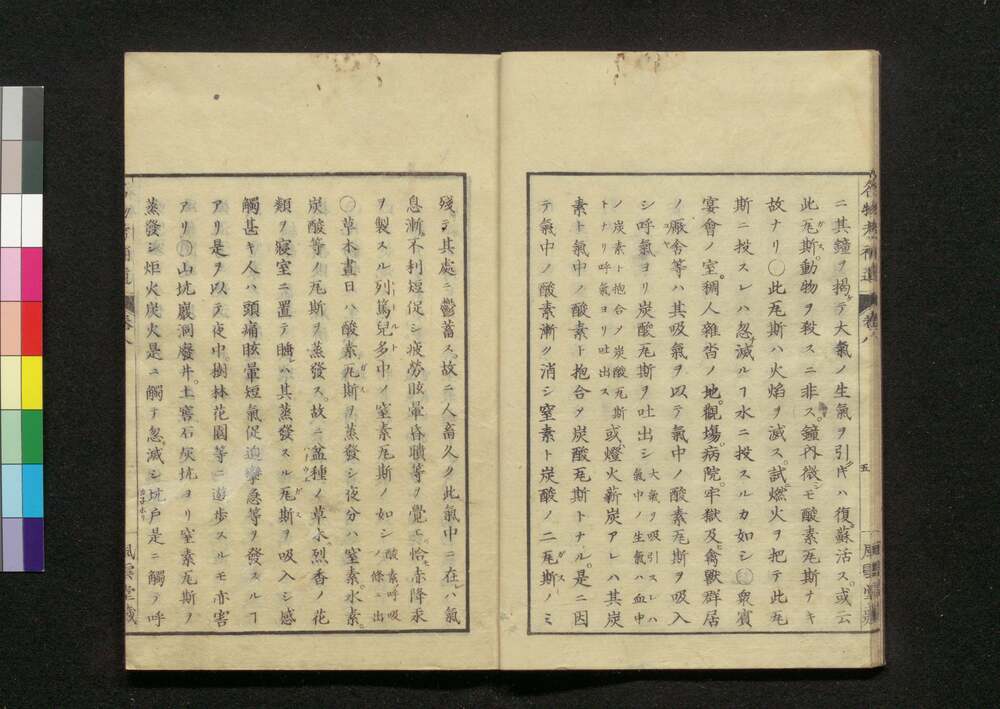 名物考補遺 巻八 五 風雲堂蔵
ニ其鐘ヲ揚テ大氣ノ生氣ヲ引ケバ復蘇活ス。或云
此瓦斯動物ヲ殺スニ非ス。鐘内微シモ酸素瓦斯ナキ
故ナリ〇此瓦斯ハ火焰ヲ滅ス。試燃火ヲ把テ此瓦
斯ニ投スレハ忽滅ルヿ水ニ投スルカ如シ〇衆賓
宴會ノ室。稠人雜沓ノ地。觀場。病院。牢獄及禽獸群居
ノ厰舎等ハ其吸氣ヲ以テ氣中ノ酸素瓦斯ヲ吸入
シ呼氣ヨリ炭酸瓦斯ヲ吐出シ 大氣ヲ吸引スレハ氣中ノ生氣ハ血中
ノ炭素ト抱合ノ炭酸瓦斯トナリ呼氣ヨリ吐出ス 或ハ燈火薪炭アレハ其炭
素ト氣中ノ酸素ト抱合メ炭酸瓦斯トナル。是ニ因
テ氣中ノ酸素漸ク消シ窒素ト炭酸ノ二瓦斯ノミ
殘テ其處ニ鬱蓄ス。故ニ人畜久ク此氣中ニ在ハ氣
息漸不利短促シ疲勞眩暈昏聵等ヲ覺ユ。恰赤降汞
ヲ製スル列篤兒多中ノ窒素瓦斯ノ如シ 酸素呼吸ノ條ニ出
〇草木晝日ハ酸素瓦斯ヲ蒸發シ夜分ハ窒素。水素。
炭酸等ノ瓦斯ヲ蒸發ス。故ニ盆種ノ草木烈香ノ花
類ヲ寢室ニ置テ睡ハ其蒸發スル瓦斯ヲ吸入シ感
觸甚キ人ハ頭痛眩暈短氣促迫攣急等ヲ發スルヿ
アリ是ヲ以テ夜中。樹林花園等ニ遊歩スルモ亦害
アリ〇山坑巖洞廢井。土窖石灰坑ヨリ窒素瓦斯ヲ
蒸發シ炬火炭火是ニ觸テ忽滅シ坑戸是ニ觸テ呼
巻八 風雲堂蔵